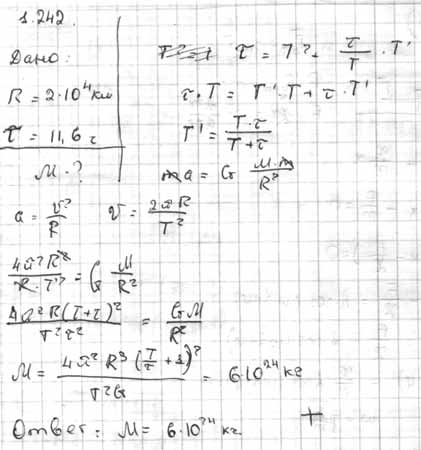 1.242.
Дано:
R = 2·10⁴ км
τ = 11,6 ч
M - ?
τ = T' + τ/T · T'
τ·T = T'·T + τ·T'
T' = T·τ / T+τ
ma = G M·m / R²
a = v²/R v = 2πR / T²
4π²R² / R·T'² = G M/R²
4π²R(T+τ)² / T²τ² = GM / R²
M = 4π²R³ (T/τ + 1)² / T²G = 6·10²⁴ кг
Ответ: M = 6·10²⁴ кг
+